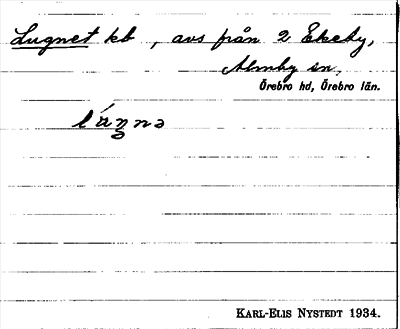 Lugnet kb , avs från 2 Ekeby,
Almby sn,
Örebro hd, Örebro län.
KARL-ELIS NYSTEDT 1934.